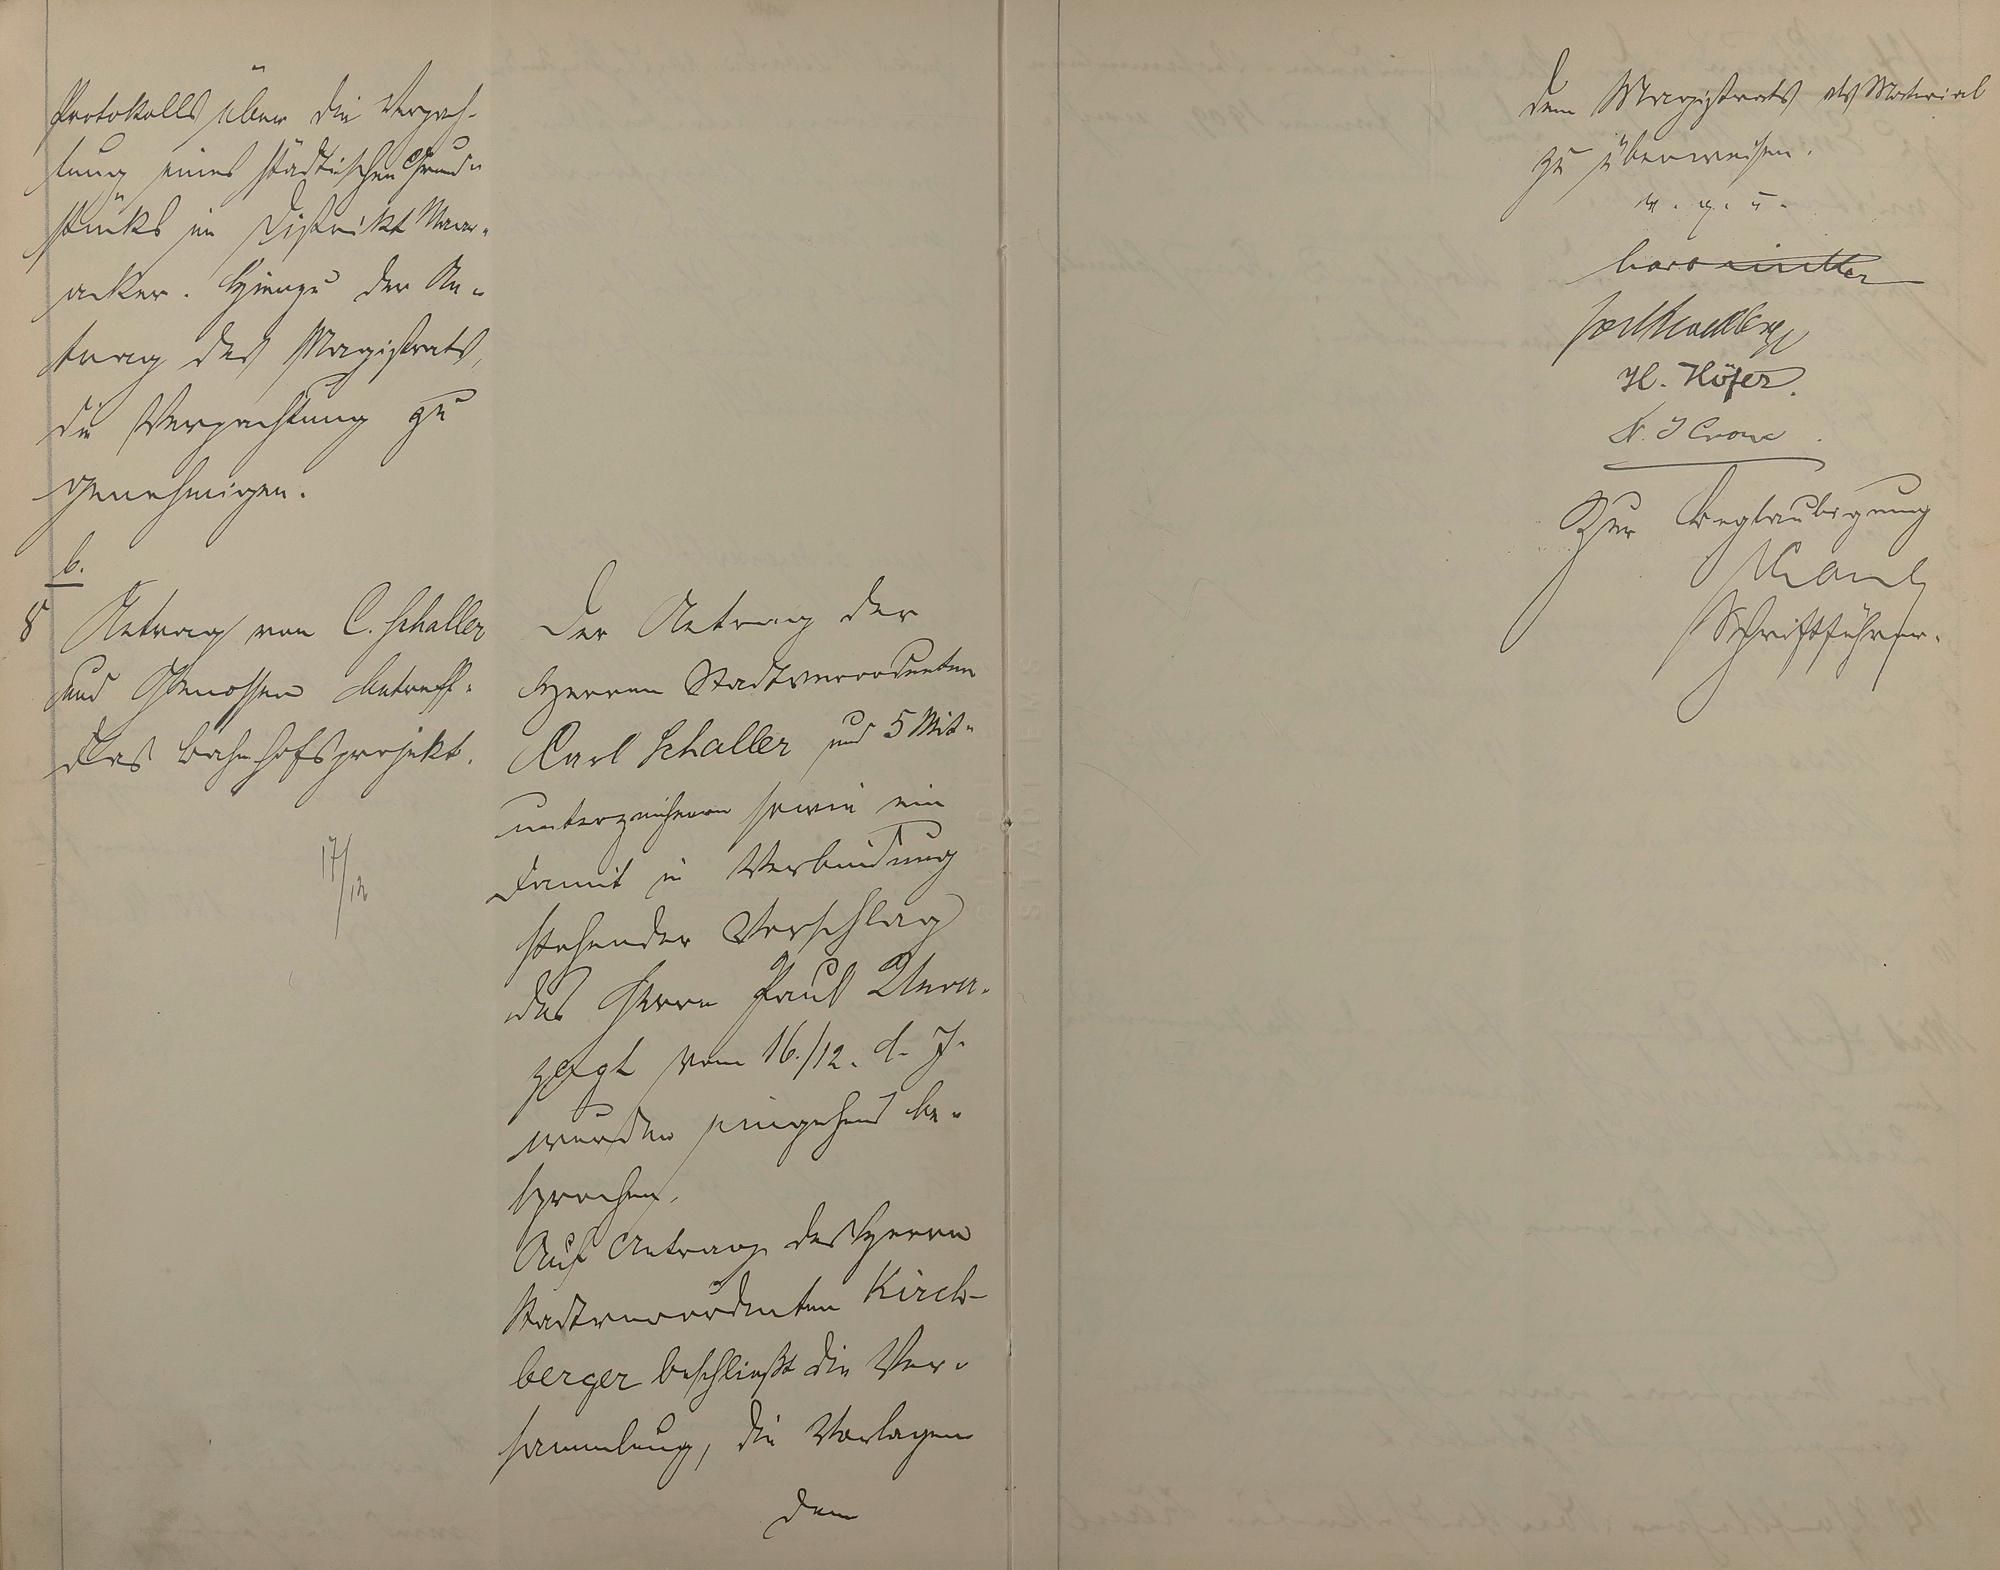 Protokolls über die Verpach-
tung eines städtischen Grund-
stücks im Distrikt Maar-
acker. Hierzu der An-
trag des Magistrats,
die Verpachtung zu
genehmigen.
b.
8 Antrag von C. Schaller
und Genossen betreff.
das Bahnhofsprojekt.
17/12
Der Antrag der
Herren Stadtverordneten
Carl Schaller und 5 Mit-
unterzeichnern sowie ein
damit in Verbindung
stehender Vorschlag
des Herrn Paul Unver-
zagt vom 16./12. d. J.
wurden eingehend be-
sprochen.
Auf Antrag des Herrn
Stadtverordneten Kirch-
berger beschließt die Ver-
sammlung, die Vorlagen
dem
dem Magistrats als Material
zu überweisen.
v. g. u.
H. Höfer.
Zur Beglaubigung
Schriftführer.